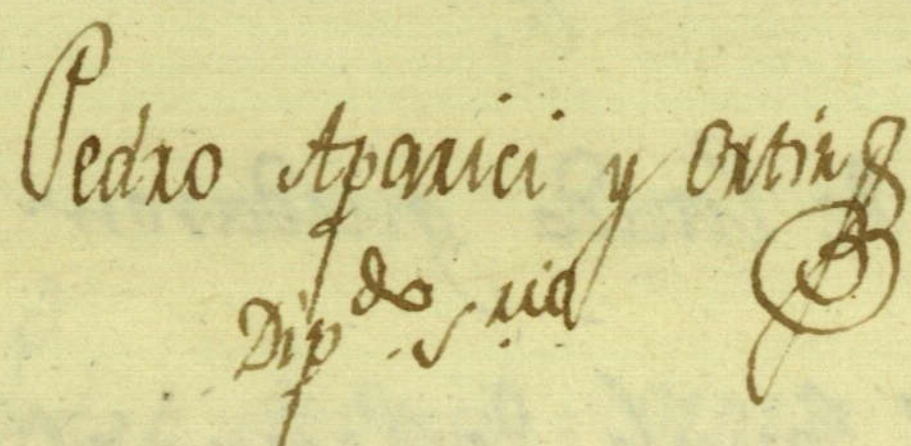 Pedro Aparici y Ortiz
Dip.do S.rio